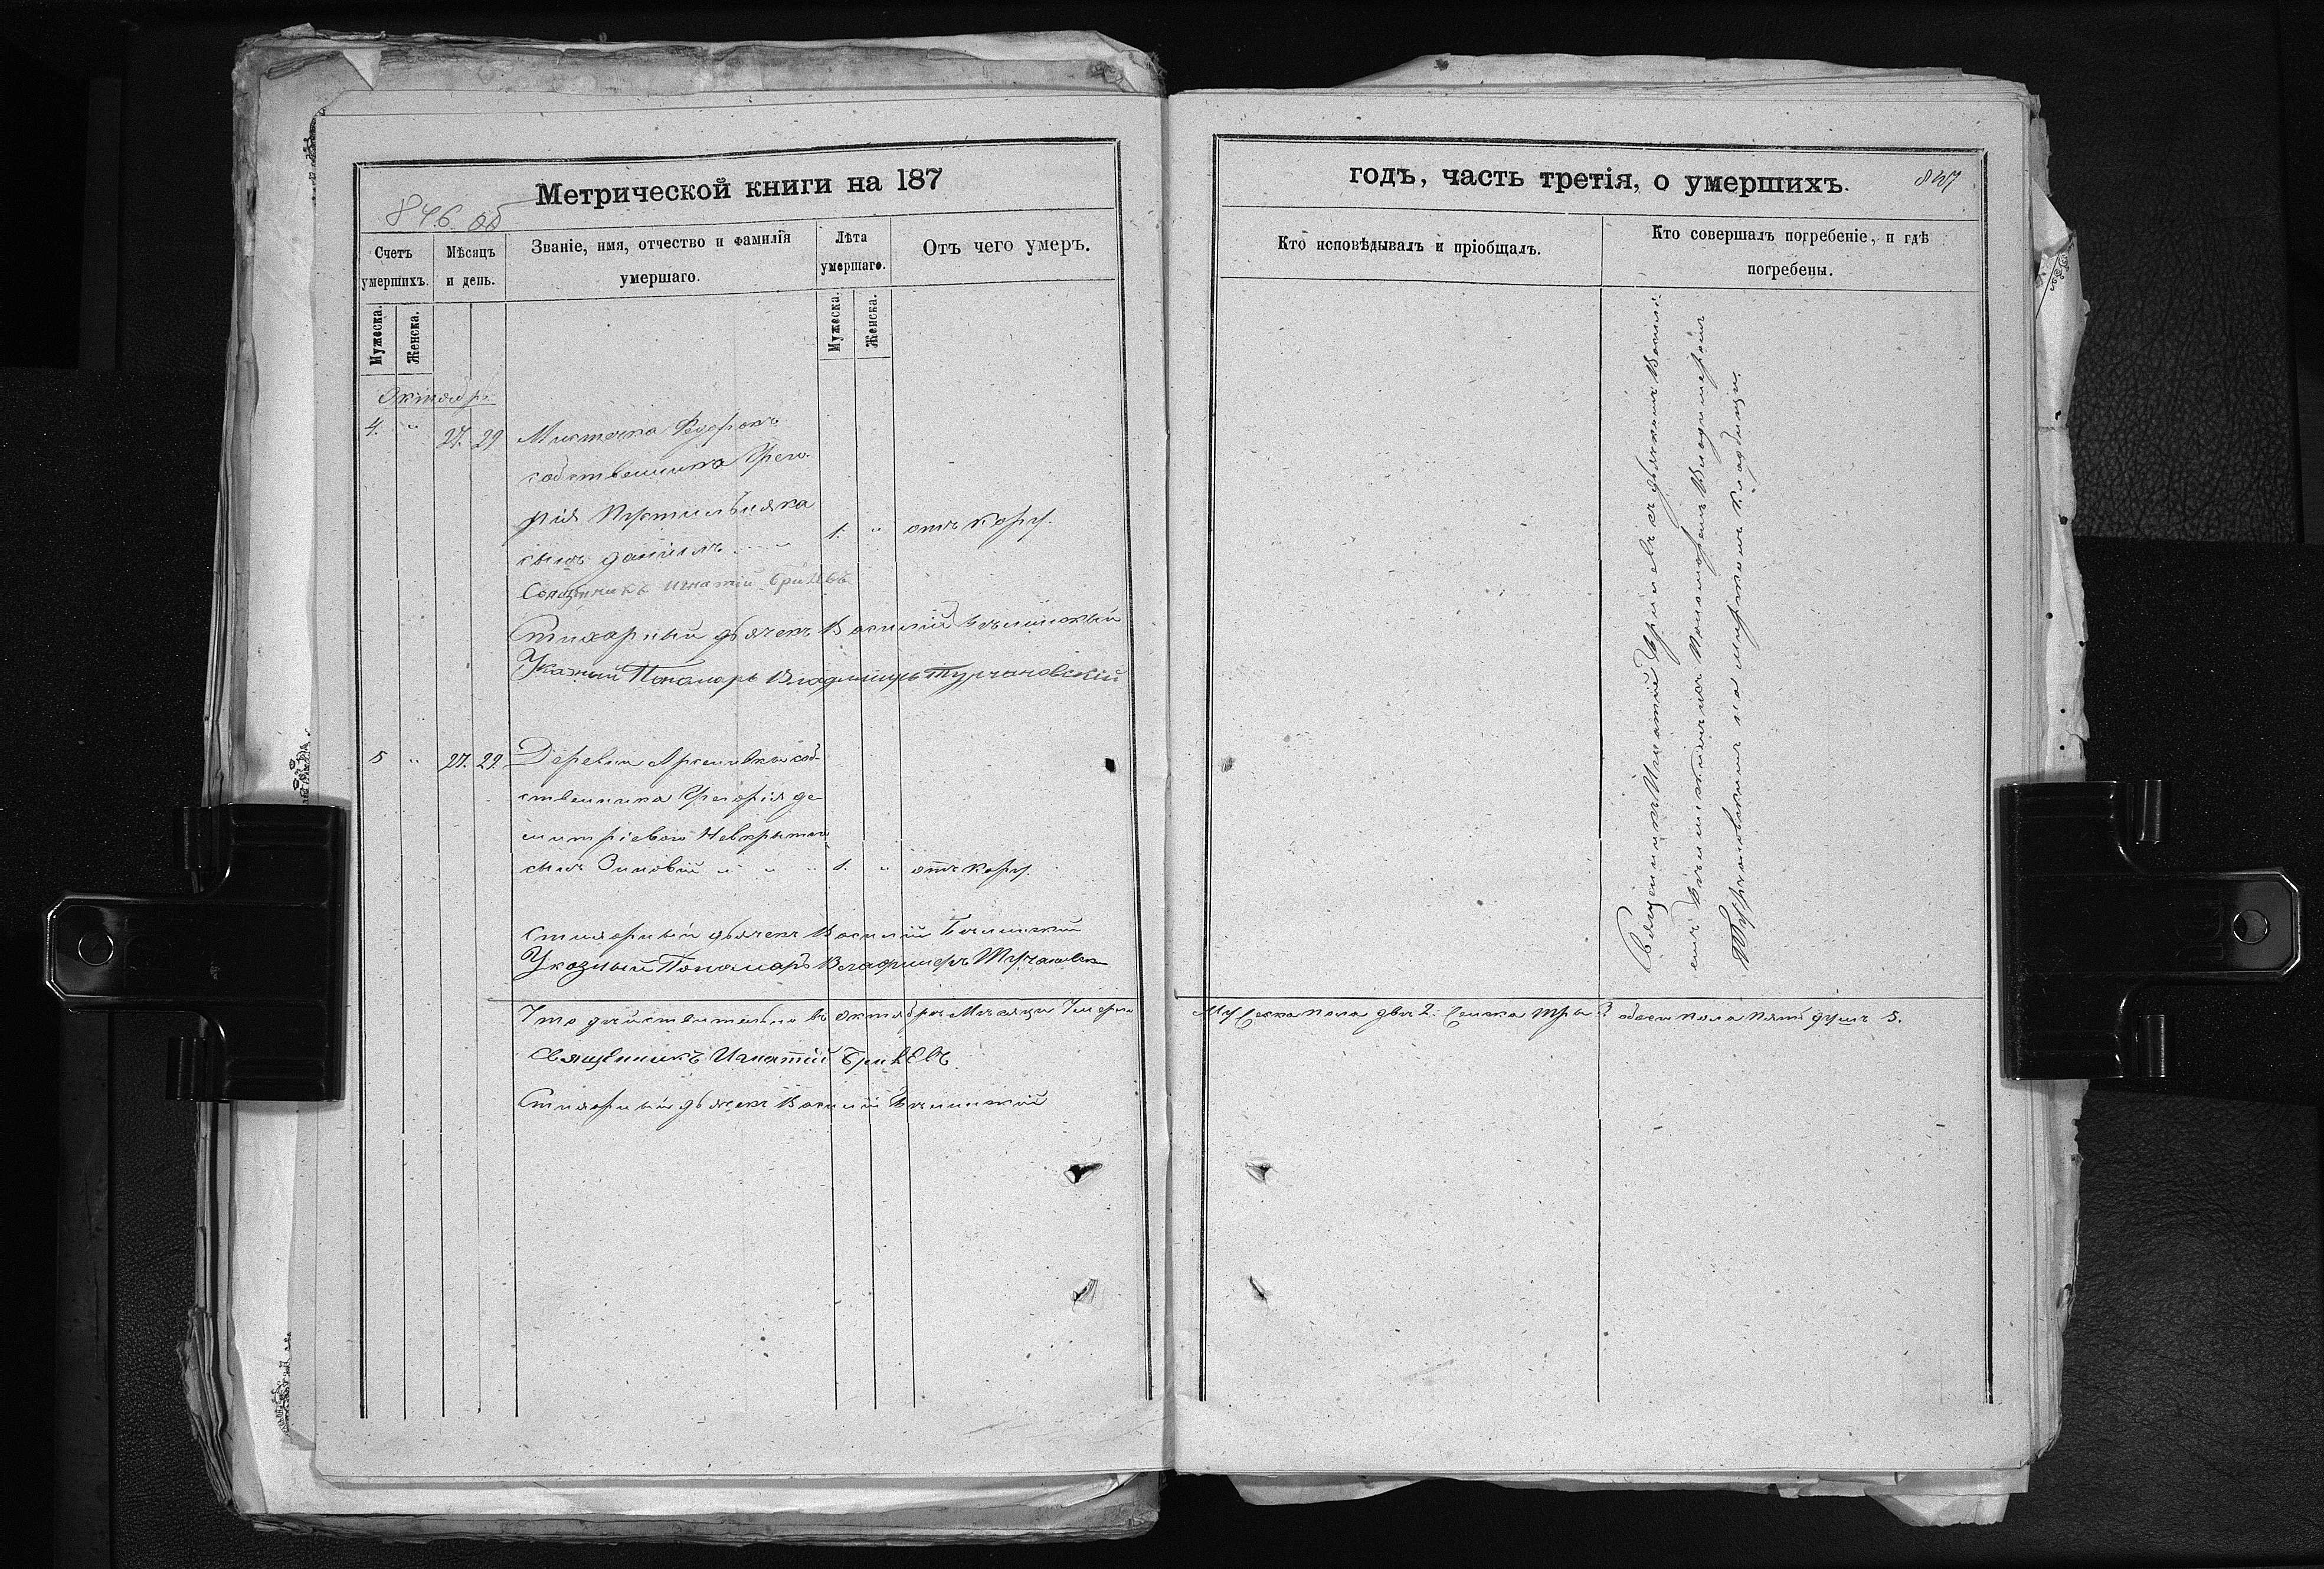 Метрической книги на 187
846 об
Счетъ умершихъ.
Мѣсяцъ и день.
Званіе, имя, отчество и фамилія умершаго.
Лѣта умершаго.
Отъ чего умеръ.
Мужеска.
Женска.
Мужеска.
Женска.
Октябрь
4. " 27. 29
собственника Григо
рія
сынъ Даніилъ 1. " отъ кору.
Священникъ Игнатій
Стихарный дьячекъ Василій
Указный Пономарь Владимиръ Турчановскій
5 " 27. 29. Деревни соб
ственника Григорія Ди
митріевого
сынъ Зиновій " " " 1. " отъ кору.
Стихарный дьячекъ Василій
Указный Пономарь Владимиръ
Что дѣйствительно въ октябрѣ Мѣсяцѣ Умерло
Священникъ Игнатій
Стихарный дьячекъ Василій
годъ, часть третія, о умершихъ.
847
Кто исповѣдывалъ и пріобщалъ.
Кто совершалъ погребеніе, и гдѣ погребены.
Священникъ Игнатій съ дьячкомъ Василі
емъ и Пономаремъ Владимеромъ
Турчановскимъ на мирскомъ кладбищи.
Мужеска пола два 2. Женска три 3 обоего пола пять душъ 5.